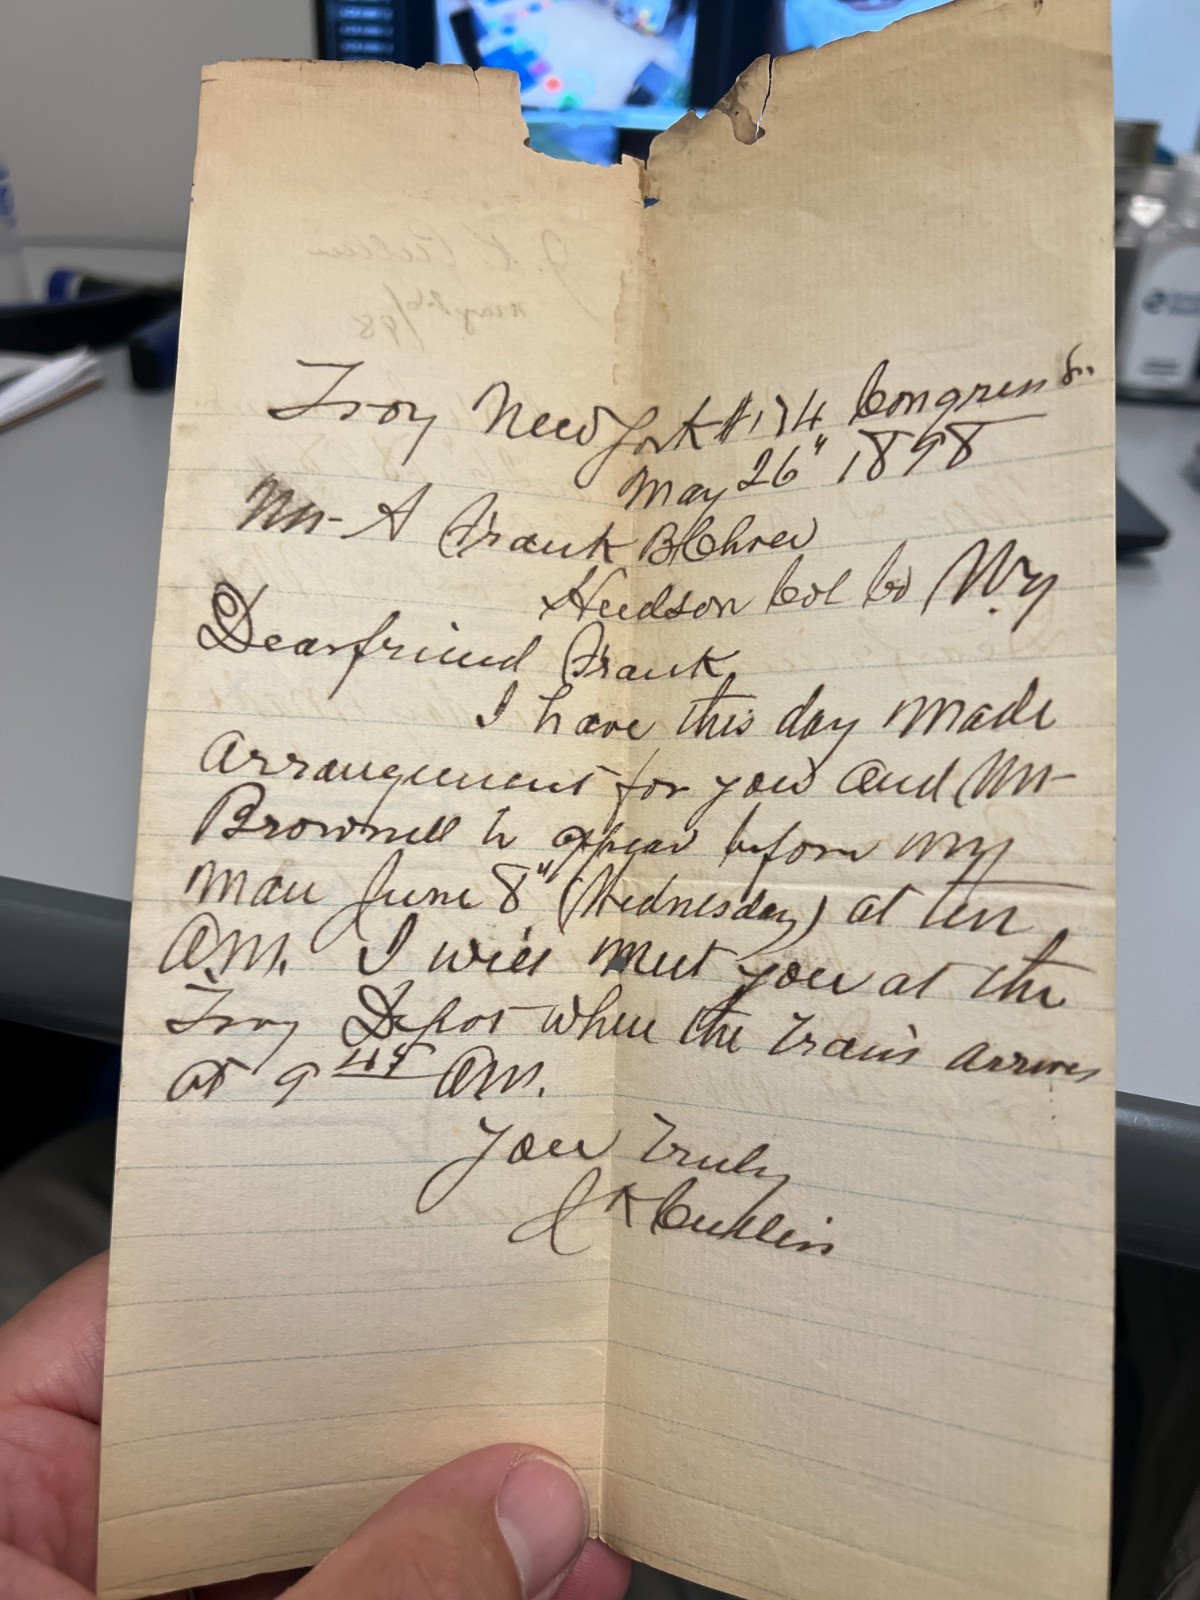 Troy New York #174 Congress St.
May 26" 1898
Mr- A Frank B
Hudson Col Co N.Y
Dear friend Frank,
I have this day made
arrangement for you and Mr-
Brownell to appear before my
man June 8" (Wednesday) at ten
AM. I will meet you at the
Troy Depot when the train arrives
at 9 45 AM.
Your Truly
J K